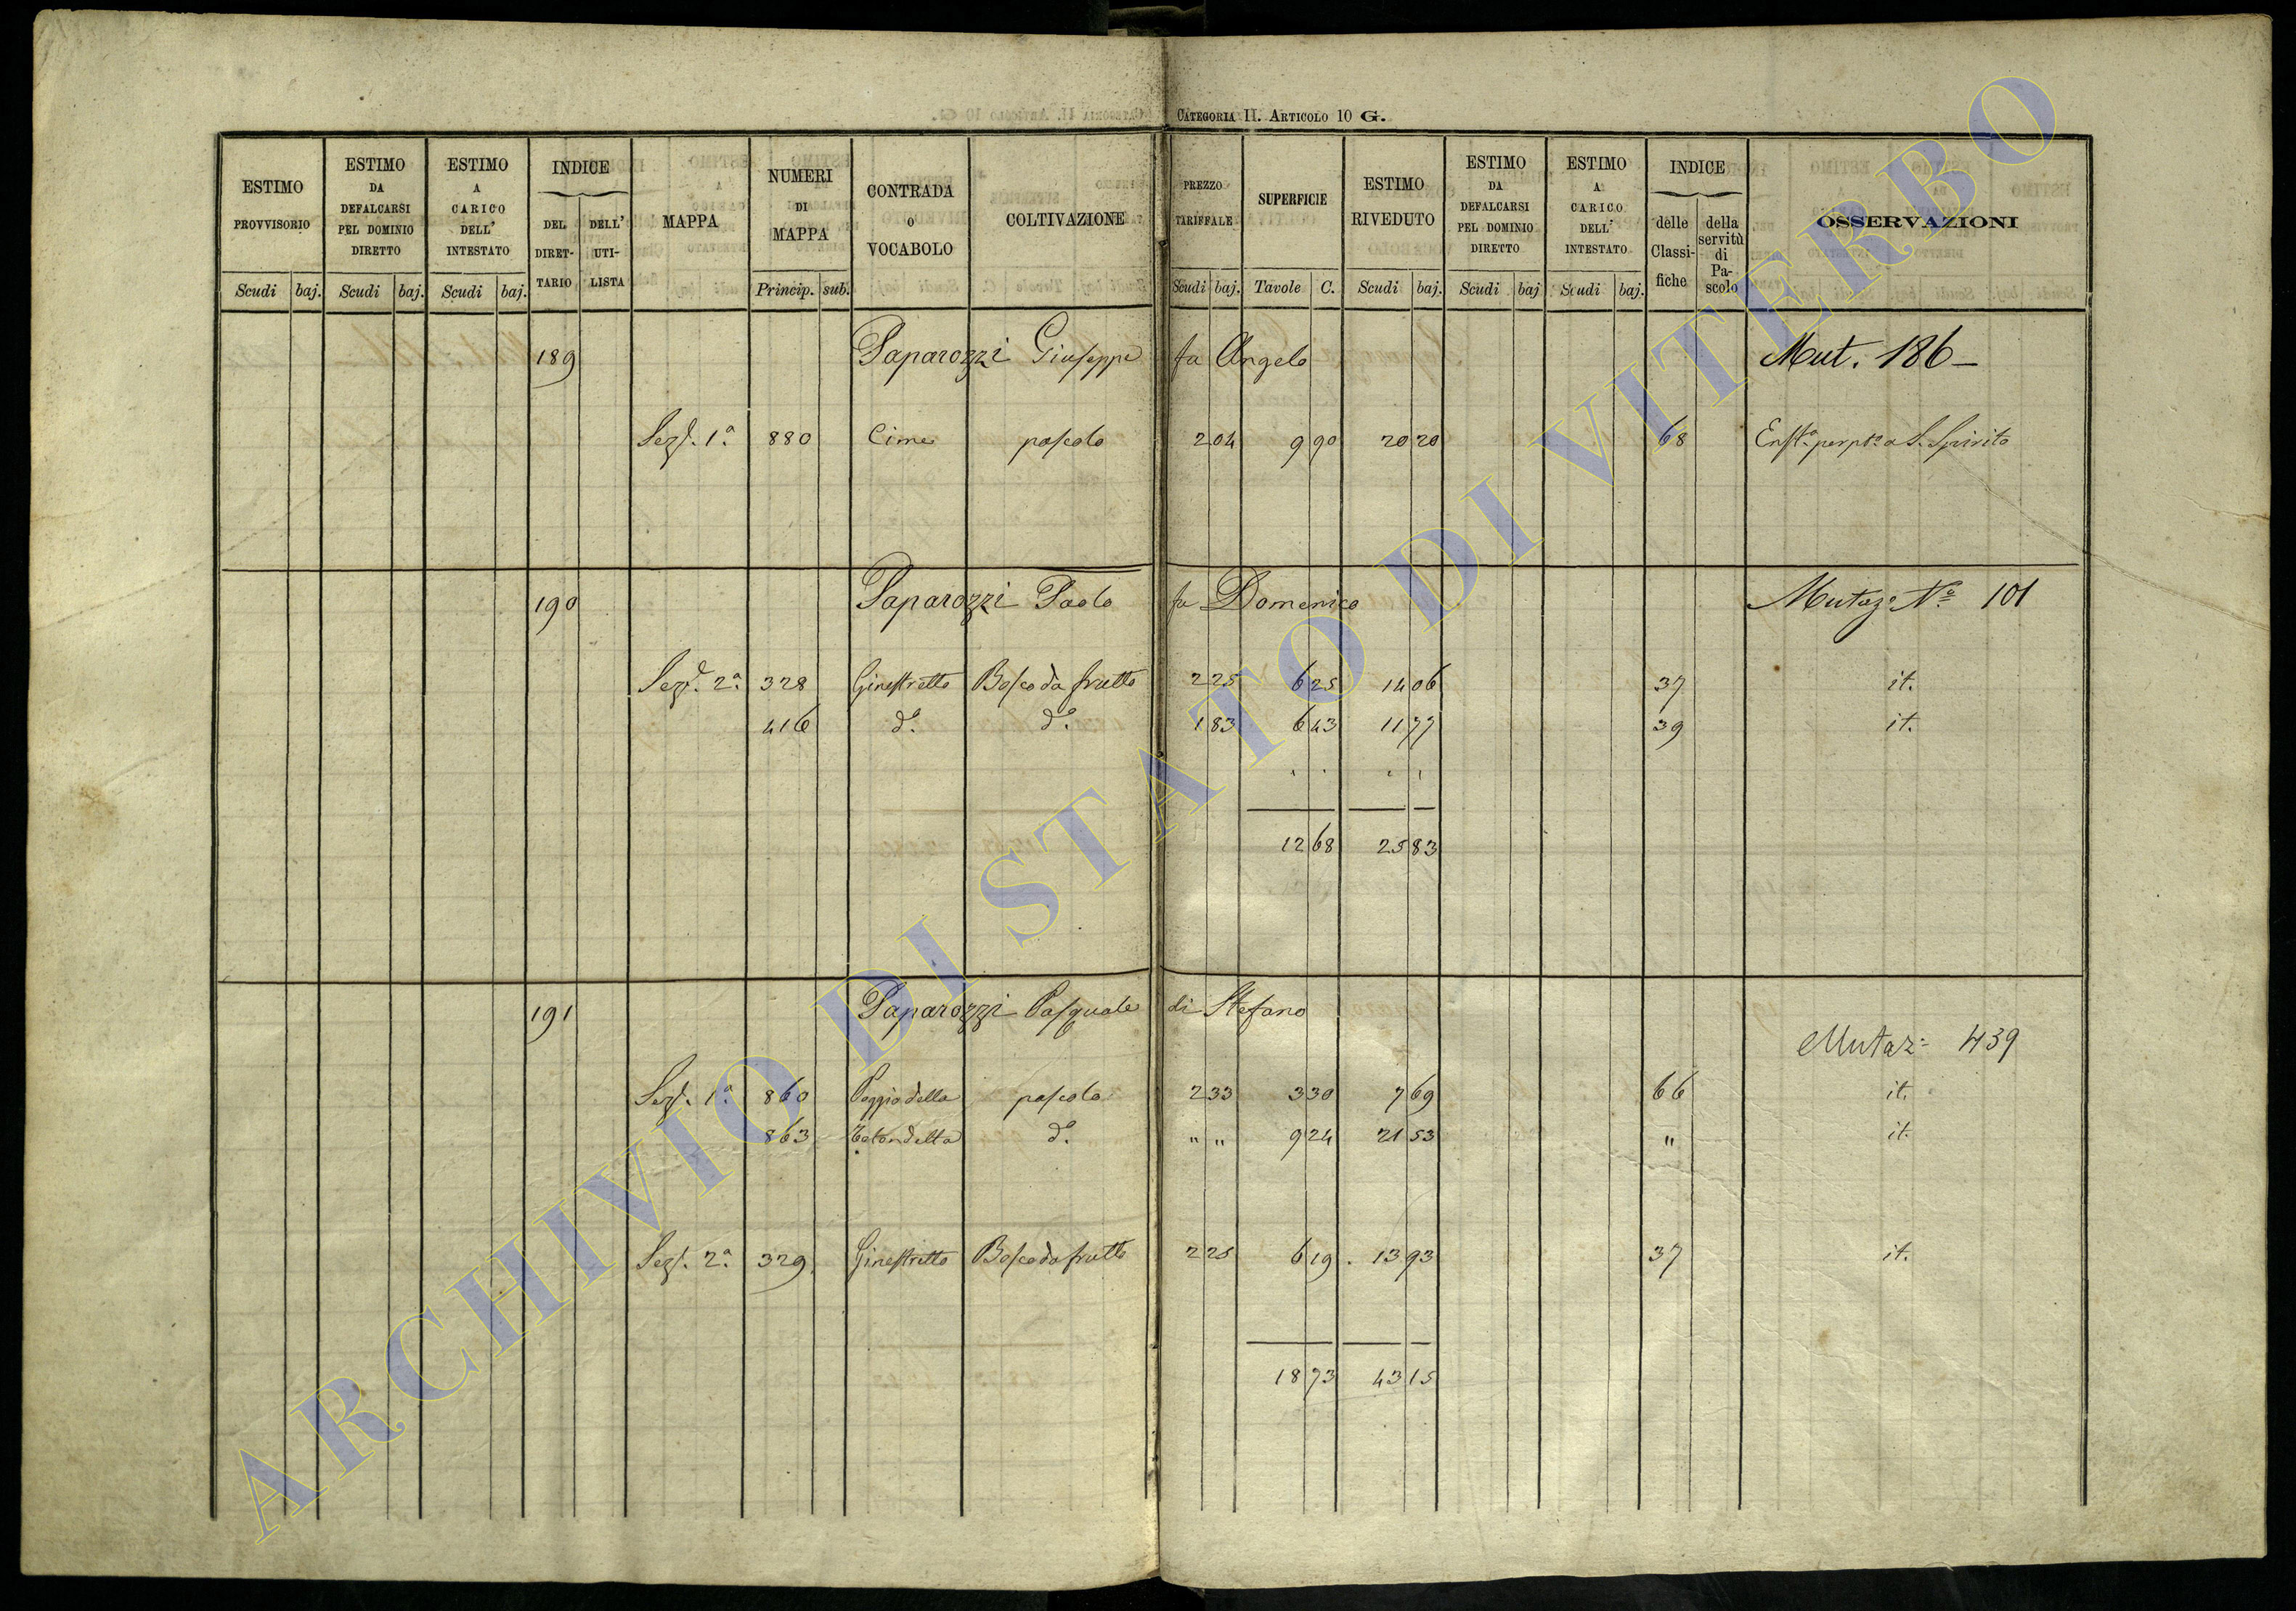 CATEGORIA II. ARTICOLO 10 G.
ESTIMO PROVVISORIO Scudi baj.
ESTIMO DA DEFALCARSI PEL DOMINIO DIRETTO Scudi baj.
ESTIMO A CARICO DELL' INTESTATO Scudi baj.
INDICE DEL DIRET-TARIO DELL' UTI-LISTA
MAPPA
NUMERI DI MAPPA Princip. sub.
CONTRADA O VOCABOLO
COLTIVAZIONE
PREZZO TARIFFALE Scudi baj.
SUPERFICIE Tavole C.
ESTIMO RIVEDUTO Scudi baj.
ESTIMO DA DEFALCARSI PEL DOMINIO DIRETTO Scudi baj
ESTIMO A CARICO DELL' INTESTATO Scudi baj.
INDICE delle Classi-fiche della servitù di Pa-scolo
OSSERVAZIONI
189 Paparozzi Giuseppe fu Angelo Mut. 186 –
Sez.e 1a. 880 Cime pascolo 2 04 9 90 20 20 68 Enf.a perp.a a S. Spirito
190 Paparozzi Paolo fu Domenico Mutaz.e No 101
Sez.e 2a. 328 Ginestretto Bosco da frutto 2 25 6 25 14 06 37 it.
416 do. do. 1 83 6 43 11 77 39 it.
12 68 25 83
191 Paparozzi Pasquale di Stefano
Mutaz= 439
Sez.e 1a. 860 Poggio della pascolo 2 33 3 30 7 69 66 it.
863 do. " " 9 24 21 53 " it.
Sez.e 2a. 329 Ginestretto Bosco da frutto 2 25 6 19 13 93 37 it.
18 73 43 15
ARCHIVIO DI STATO DI VITERBO